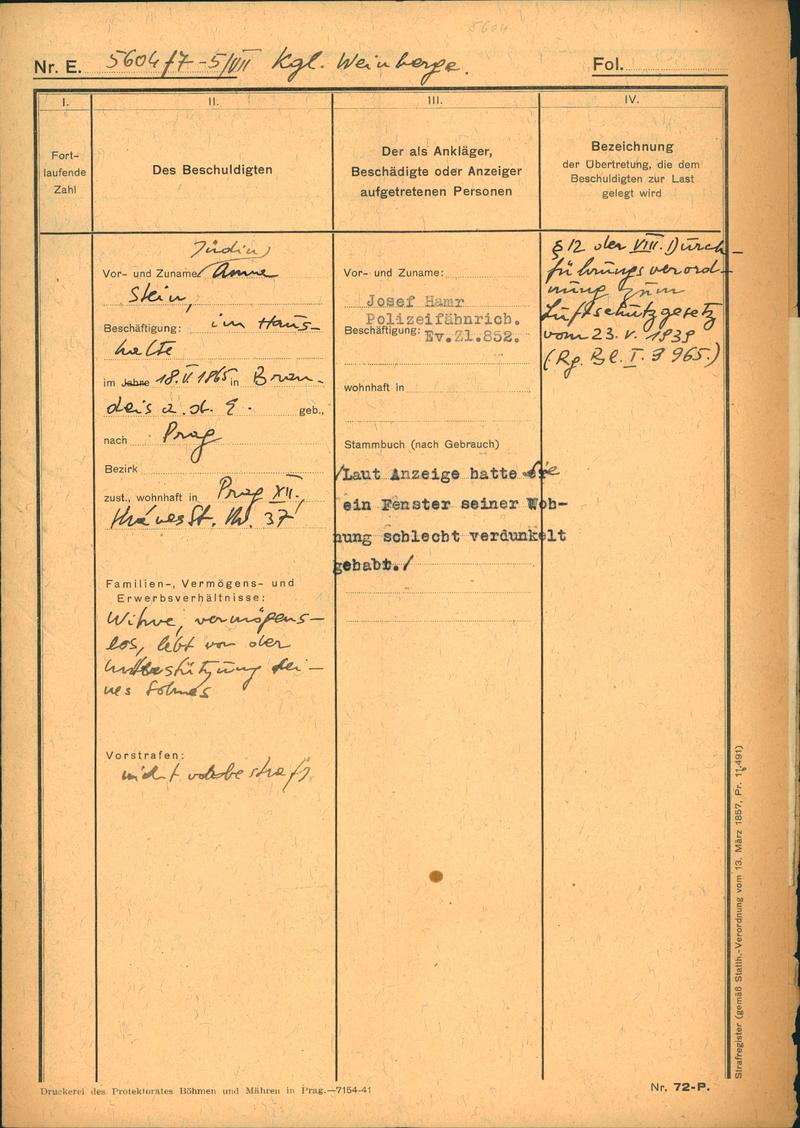 5604
Nr. E. 5604/7-5/VII Kgl. Weinberge. Fol.
I. II. III. IV.
Fort-
laufende
Zahl
Des Beschuldigten
Der als Ankläger,
Beschädigte oder Anzeiger
aufgetretenen Personen
Bezeichnung
der Übertretung, die dem
Beschuldigten zur Last
gelegt wird
Jüdin
Vor- und Zuname: Anna
Stein,
Beschäftigung: im Haus-
halte
im Jahre 18.V.1865 in Bran-
deis a.d. E. geb.,
nach Prag
Bezirk
zust., wohnhaft in Prag XII.,
St. Nr. 37
Familien-, Vermögens- und
Erwerbsverhältnisse:
Witwe, vermögens-
los, lebt von der
Unterstützung sei-
nes Sohnes
Vorstrafen:
nicht vorbestraft
Vor- und Zuname:
Josef Hamr
Polizeifähnrich.
Beschäftigung: Ev.Zl.852.
wohnhaft in
Stammbuch (nach Gebrauch)
/Laut Anzeige hatte Sie
ein Fenster seiner Woh-
nung schlecht verdunkelt
gehabt./
§ 12 der VIII. Durch-
führungsverord-
nung zum
Luftschutzgesetz
vom 23. V. 1939
(Rg. Bl. I. S 965.)
Strafregister (gemäß Statth.-Verordnung vom 13. März 1857, Pr. 11.491)
Druckerei des Protektorates Böhmen und Mähren in Prag.—7154-41
Nr. 72-P.